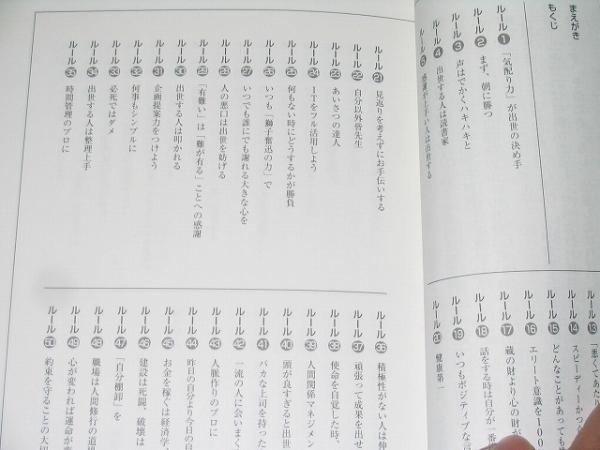 まえがき
もくじ
ルール❶ 「気配り力」が出世の決め手
ルール❷ まず、朝に勝つ
ルール❸ 声はでかくハキハキと
ルール❹ 出世する人は読書家
ルール❺ 感謝が上手い人は出世する
ルール⓭ 「悪くてあた
ルール⓮ スピーディーかつ
ルール⓯ どんなことがあっても
ルール⓰ エリート意識を100
ルール⓱ 蔵の財より心の財が
ルール⓲ 話をする時は自分が一番
ルール⓳ いつもポジティブな言
ルール⓴ 健康第一
ルール㉑ 見返りを考えずにお手伝いする
ルール㉒ 自分以外皆先生
ルール㉓ あいさつの達人
ルール㉔ ITをフル活用しよう
ルール㉕ 何もない時にどうするかが勝負
ルール㉖ いつも「獅子奮迅の力」で
ルール㉗ いつでも誰にでも謝れる大きな心を
ルール㉘ 人の悪口は出世を妨げる
ルール㉙ 「有難い」は「難が有る」ことへの感謝
ルール㉚ 出世する人は叩かれる
ルール㉛ 企画提案力をつけよう
ルール㉜ 何事もシンプルに
ルール㉝ 必死ではダメ
ルール㉞ 出世する人は整理上手
ルール㉟ 時間管理のプロに
ルール㊱ 積極性がない人は伸
ルール㊲ 頑張って成果を出せ
ルール㊳ 使命を自覚した時、
ルール㊴ 人間関係マネジメン
ルール㊵ 頭が良すぎると出世
ルール㊶ バカな上司を持った
ルール㊷ 一流の人に会いまく
ルール㊸ 人脈作りのプロに
ルール㊹ 昨日の自分より今日の自
ルール㊺ お金を稼ぐには経済学、
ルール㊻ 建設は死闘、破壊は
ルール㊼ 「自分棚卸」を
ルール㊽ 職場は人間修行の道場
ルール㊾ 心が変われば運命が変
ルール㊿ 約束を守ることの大切